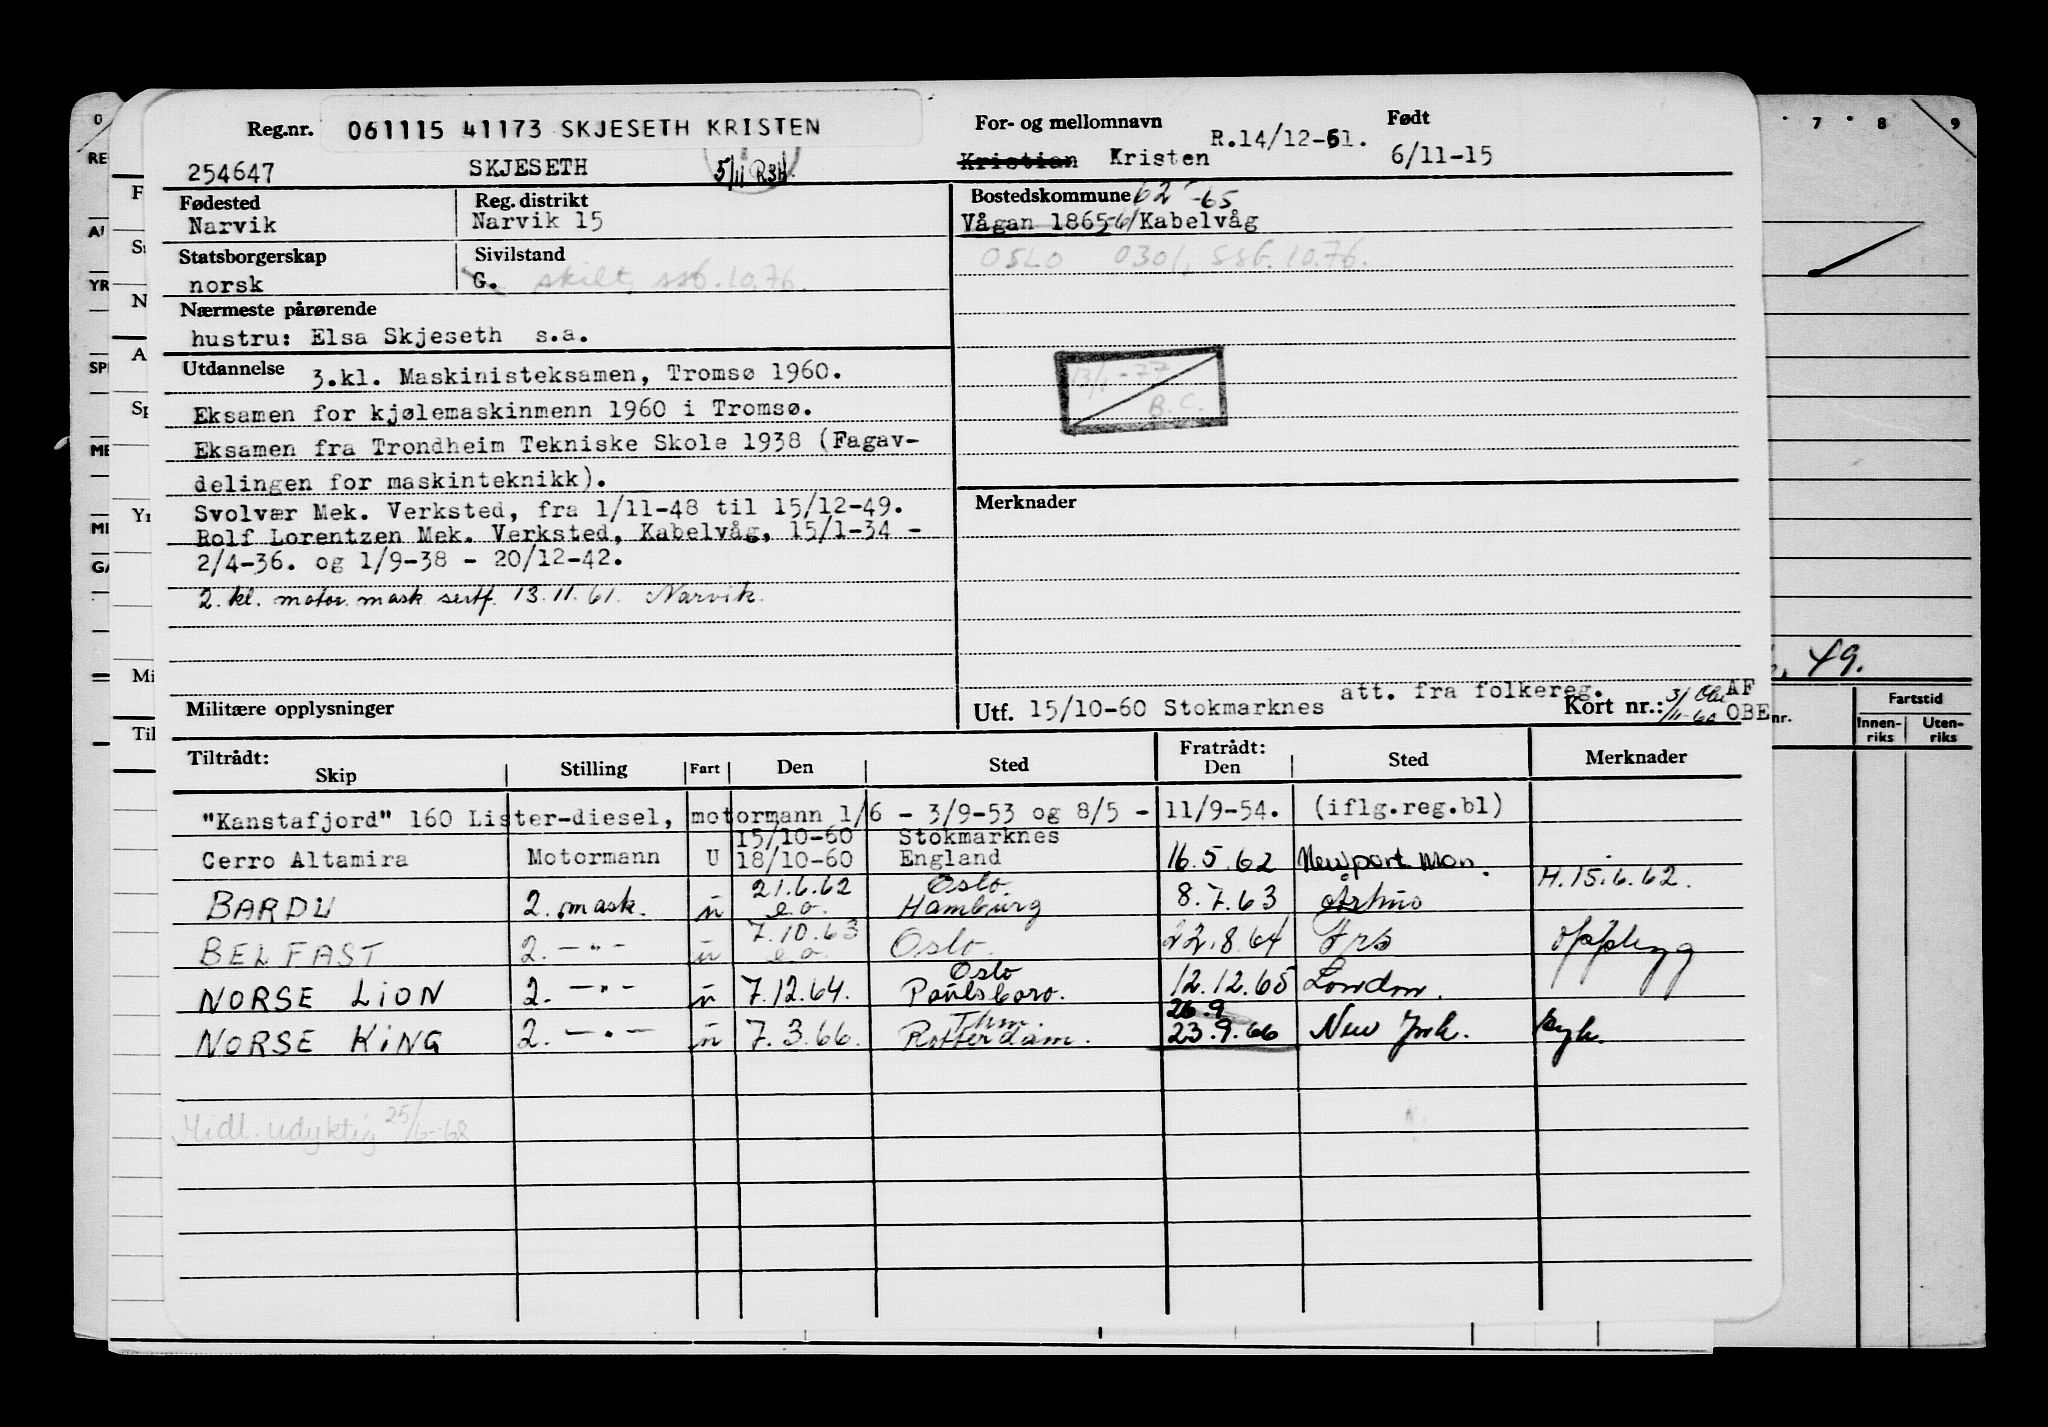 Reg.nr. 061115 41173 SKJESETH KRISTEN
For- og mellomnavn R.14/12-61. Født
254647 SKJESETH 5/11
Kristian Kristen 6/11-15
Fødested Reg. distrikt
Narvik Narvik 15
Bostedskommune 62 -65
Vågan 1865-61 Kabelvåg
OSLO 0301, SSB.10.76.
Statsborgerskap Sivilstand
norsk G. skilt, ssb.10.76.
Nærmeste pårørende
hustru: Elsa Skjeseth s.a.
Utdannelse 3.kl. Maskinisteksamen, Tromsø 1960.
Eksamen for kjølemaskinmenn 1960 i Tromsø.
Eksamen fra Trondheim Tekniske Skole 1938 (Fagav-
delingen for maskinteknikk).
Svolvær Mek. Verksted, fra 1/11-48 til 15/12-49.
Rolf Lorentzen Mek. Verksted, Kabelvåg, 15/1-34 -
2/4-36. og 1/9-38 - 20/12-42.
2. kl. motor mask sertf. 13.11.61. Narvik.
13/1-77
B.C.
Merknader
Militære opplysninger
att. fra folkereg.
Utf. 15/10-60 Stokmarknes Kort nr.: 3/11-60 AF
OBE
Tiltrådt: Fratrådt:
Skip Stilling Fart Den Sted Den Sted Merknader
"Kanstafjord" 160 Lister-diesel, motormann 1/6 - 3/9-53 og 8/5 - 11/9-54. (iflg.reg.bl)
15/10-60 Stokmarknes
Cerro Altamira Motormann U 18/10-60 England 16.5.62 Newport Mon. H.15.6.62.
21.6.62 Oslo.
BARDU 2. mask. u e.o. Hamburg 8.7.63 Århus
7.10.63
BELFAST 2. -"- u e.o. Oslo. 22.8.64 opplegg
Oslo
NORSE LION 2. -"- u 7.12.64. Paulsboro. 12.12.65 London.
Thm. 26.9
NORSE KING 2. -"- u 7.3.66. Rotterdam. 23.9.66 New York. syk.
Midl. udyktig 25/6-68
0
RE
AI
YR
SPI
ME
MI
GA
F
N
A
Sp
Yr
Mi
Til
7 8 9
49.
Fartstid
nr. Innen-riks Uten-riks